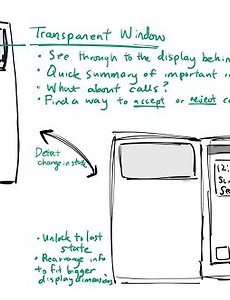 Transparent Window
• See through to the display behin
• Quick summary of important in
• What about calls?
• Find a way to accept or reject ca
Detect
change in state
(2:
Su
• Unlock to last
state
• Rearrange info
to fit bigger
display dimensions